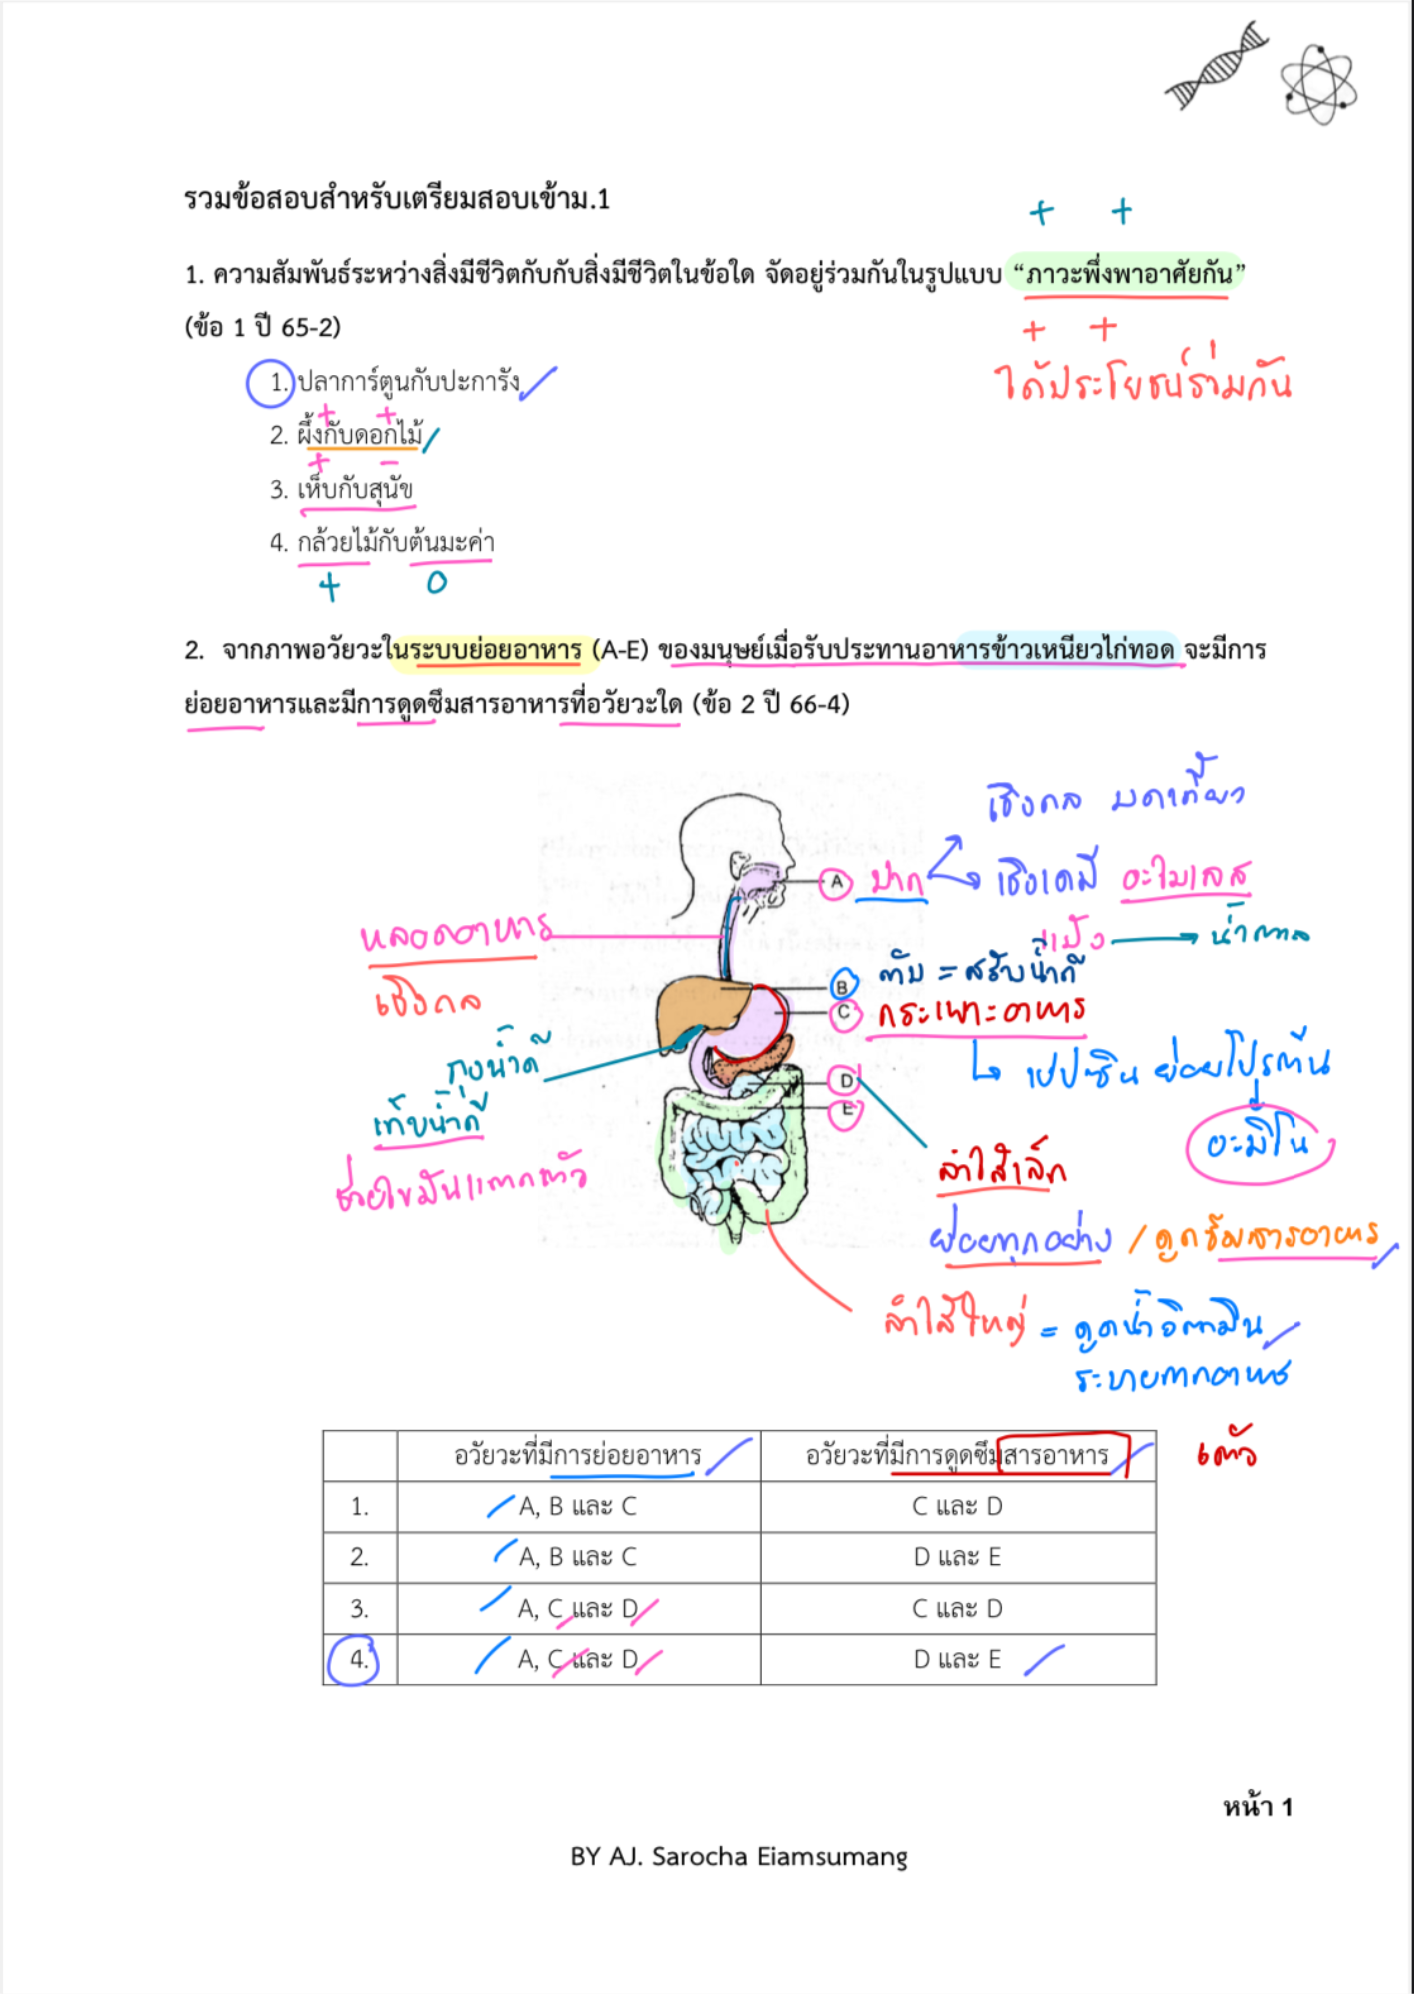 รวมข้อสอบสำหรับเตรียมสอบเข้าม.1
+ +
1. ความสัมพันธ์ระหว่างสิ่งมีชีวิตกับกับสิ่งมีชีวิตในข้อใด จัดอยู่ร่วมกันในรูปแบบ “ภาวะพึ่งพาอาศัยกัน”
(ข้อ 1 ปี 65-2)
+ +
ได้ประโยชน์ร่วมกัน
1. ปลาการ์ตูนกับปะการัง
+ +
2. ผึ้งกับดอกไม้
+ −
3. เห็บกับสุนัข
4. กล้วยไม้กับต้นมะค่า
+ 0
2. จากภาพอวัยวะในระบบย่อยอาหาร (A-E) ของมนุษย์เมื่อรับประทานอาหารข้าวเหนียวไก่ทอด จะมีการ
ย่อยอาหารและมีการดูดซึมสารอาหารที่อวัยวะใด (ข้อ 2 ปี 66-4)
เชิงกล บดเคี้ยว
A ปาก เชิงเคมี อะไมเลส
แป้ง น้ำตาล
หลอดอาหาร
เชิงกล
B ตับ = สร้างน้ำดี
C กระเพาะอาหาร
เปปซิน ย่อยโปรตีน
อะมิโน
ถุงน้ำดี
เก็บน้ำดี
ช่วยไขมันแตกตัว
D
E
ลำไส้เล็ก
ย่อยทุกอย่าง / ดูดซึมสารอาหาร
ลำไส้ใหญ่ = ดูดน้ำวิตามิน
ระบายกากอาหาร
อวัยวะที่มีการย่อยอาหาร อวัยวะที่มีการดูดซึมสารอาหาร
1. A, B และ C C และ D
2. A, B และ C D และ E
3. A, C และ D C และ D
4. A, C และ D D และ E
หน้า 1
BY AJ. Sarocha Eiamsumang